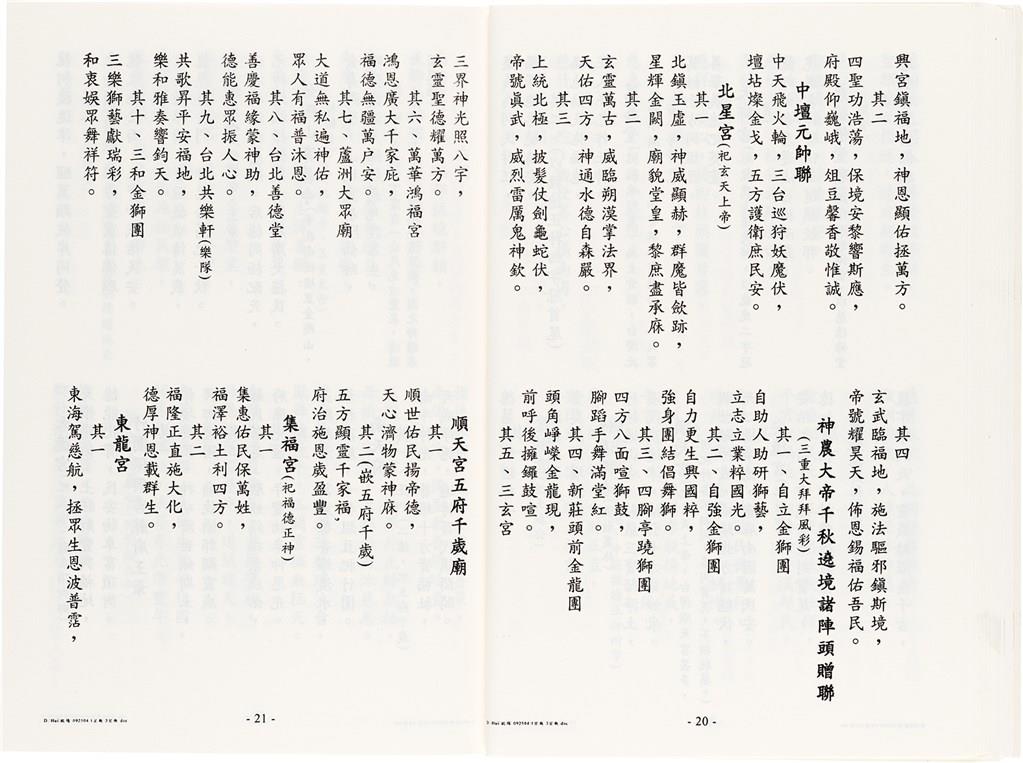 興宮鎮福地，神恩顯佑拯萬方。
其二
四聖功浩蕩，保境安黎響斯應，
府殿仰巍峨，俎豆馨香敬惟誠。
中壇元帥聯
中天飛火輪，三台巡狩妖魔伏，
壇坫燦金戈，五方護衛庶民安。
北星宮(祀玄天上帝)
其一
北鎮玉虛，神威顯赫，群魔皆斂跡，
星輝金闕，廟貌堂皇，黎庶盡承庥。
其二
玄靈萬古，威臨朔漠掌法界，
天佑四方，神通水德自森嚴。
其三
上統北極，披髮仗劍龜蛇伏，
帝號眞武，威烈雷厲鬼神欽。
其四
玄武臨福地，施法驅邪鎮斯境，
帝號耀昊天，佈恩錫福佑吾民。
神農大帝千秋遶境諸陣頭贈聯
(三重大拜拜風彩)
其一、自立金獅團
自助人助研獅藝，
立志立業粹國光。
其二、自強金獅團
自力更生興國粹，
強身團結倡舞獅。
其三、四腳亭蹺獅團
四方八面喧獅鼓，
腳蹈手舞滿堂紅。
其四、新莊頭前金龍團
頭角崢嶸金龍現，
前呼後擁鑼鼓喧。
其五、三玄宮
- 20 -
三界神光照八宇，
玄靈聖德耀萬方。
其六、萬華鴻福宮
鴻恩廣大千家庇，
福德無疆萬户安。
其七、蘆洲大眾廟
大道無私遍神佑，
眾人有福普沐恩。
其八、台北善德堂
善慶福緣蒙神助，
德能惠眾振人心。
其九、台北共樂軒(樂隊)
共歌昇平安福地，
樂和雅奏響鈞天。
其十、三和金獅團
三樂獅藝獻瑞彩，
和衷娛眾舞祥符。
順天宮五府千歲廟
其一
順世佑民揚帝德，
天心濟物蒙神庥。
其二(嵌五府千歲)
五方顯靈千家福，
府治施恩歲盈豐。
集福宮(祀福德正神)
其一
集惠佑民保萬姓，
福澤裕土利四方。
其二
福隆正直施大化，
德厚神恩載群生。
東龍宮
其一
東海駕慈航，拯眾生恩波普霑，
- 21 -